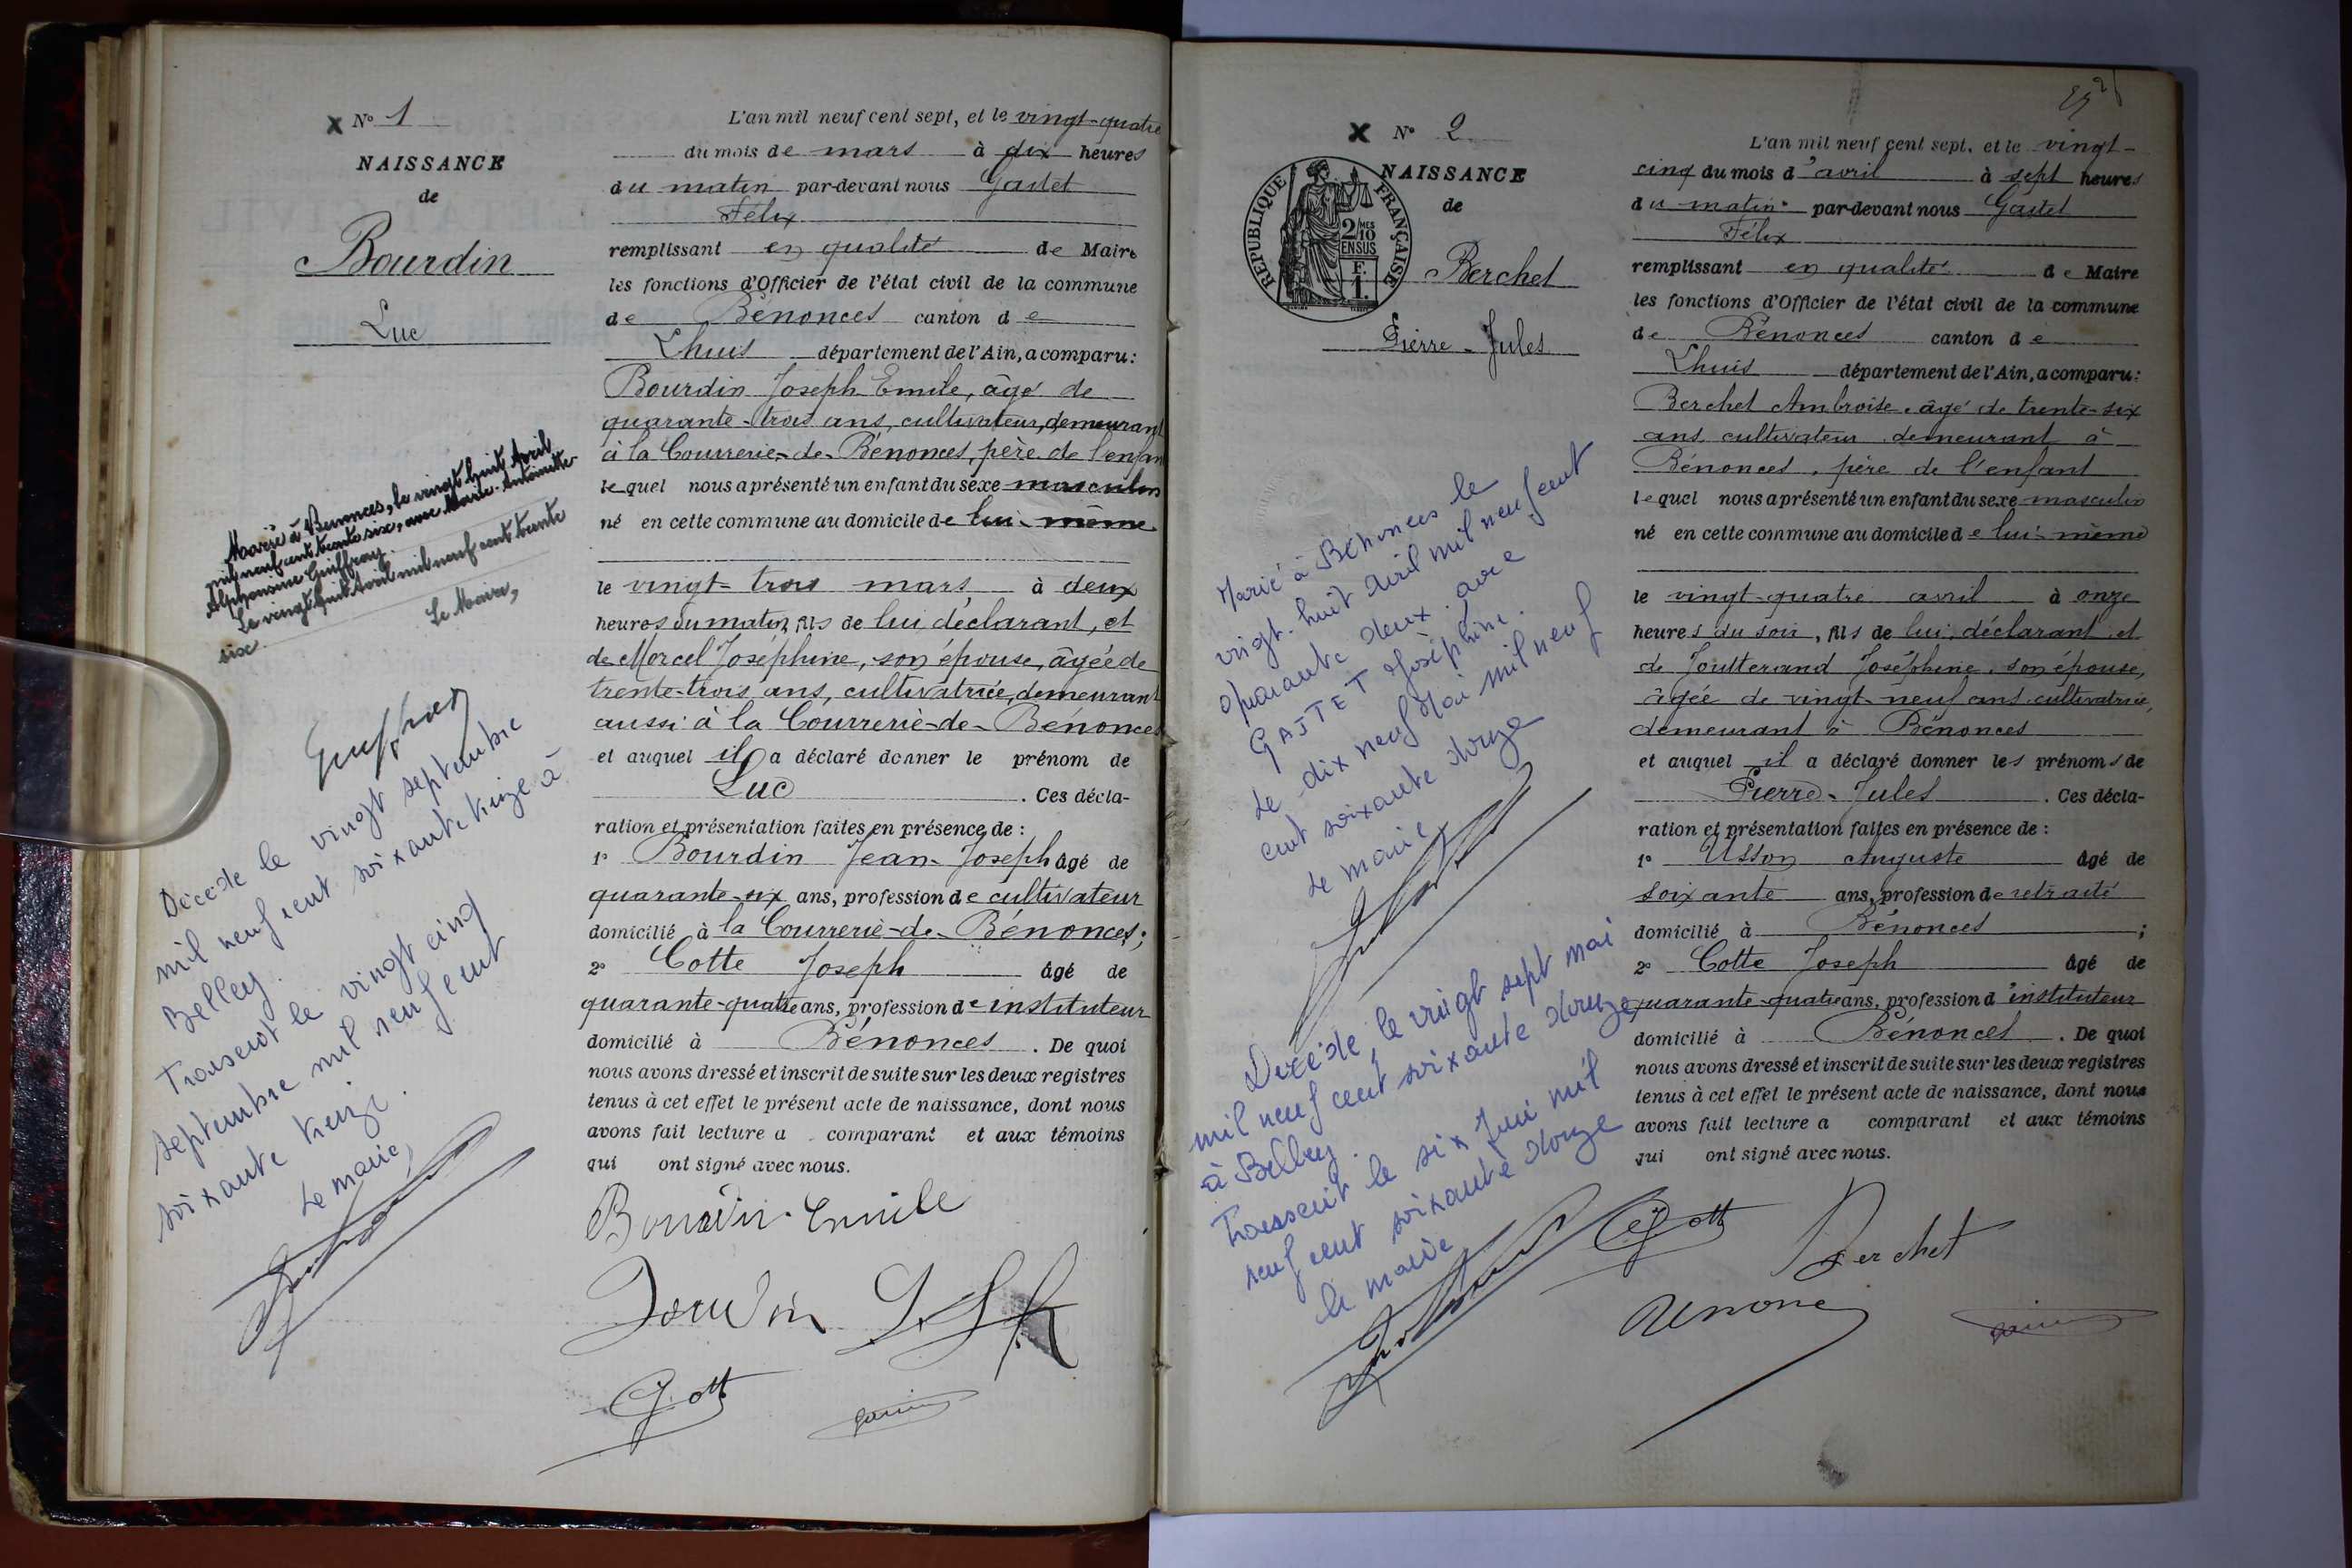 x Nº 1
NAISSANCE
de
Bourdin
Luc
Marié à Bénonces, le vingt huit Avril
mil neuf cent trente six, avec Marie-Antoinette
Alphonsine Guffray.
Le vingt huit Avril mil neuf cent trente
six
Le Maire,
Décédé le vingt septembre
mil neuf cent soixante treize à
Belley.
Transcrit le vingt cinq
septembre mil neuf cent
soixante treize.
Le maire,
L'an mil neuf cent sept, et le vingt-quatre
du mois de mars à dix heures
du matin par-devant nous Gastet
Félix
remplissant en qualité de Maire
les fonctions d'Officier de l'état civil de la commune
de Bénonces canton de
Lhuis département de l'Ain, a comparu:
Bourdin Joseph Emile, âgé de
quarante-trois ans, cultivateur, demeurant
à la Courrerie-de-Bénonces, père de l'enfant
lequel nous a présenté un enfant du sexe masculin
né en cette commune au domicile de lui-même
le vingt-trois mars, à deux
heures du matin, fils de lui déclarant, et
de Morcel Joséphine, son épouse, âgée de
trente-trois ans, cultivatrice, demeurant
aussi à la Courrerie-de-Bénonces
et auquel il a déclaré donner le prénom de
Luc. Ces décla-
ration et présentation faites en présence de :
1º Bourdin Jean-Joseph âgé de
quarante-six ans, profession de cultivateur
domicilié à la Courrerie-de-Bénonces;
2º Cotte Joseph âgé de
quarante-quatre ans, profession de instituteur
domicilié à Bénonces. De quoi
nous avons dressé et inscrit de suite sur les deux registres
tenus à cet effet le présent acte de naissance, dont nous
avons fait lecture a comparant et aux témoins
qui ont signé avec nous.
Bourdin Emile
x Nº 2
REPUBLIQUE FRANÇAISE
2/10 MES
EN SUS
F.
1.
NAISSANCE
de
Berchet
Pierre-Jules
Marié à Bénonces le
vingt-huit Avril mil neuf cent
quarante deux avec
GASTET Joséphine.
Le dix neuf Mai mil neuf
cent soixante douze
Le maire,
Décédé le vingt sept mai
mil neuf cent soixante douze
à Belley.
Transcrit le six Juin mil
neuf cent soixante douze
Le maire
L'an mil neuf cent sept, et le vingt-
cinq du mois d'avril à sept heures
du matin par-devant nous Gastet
Félix
remplissant en qualité de Maire
les fonctions d'Officier de l'état civil de la commune
de Bénonces canton de
Lhuis département de l'Ain, a comparu:
Berchet Ambroise, âgé de trente-six
ans, cultivateur demeurant à
Bénonces, père de l'enfant
lequel nous a présenté un enfant du sexe masculin
né en cette commune au domicile de lui-même
le vingt-quatre avril à onze
heures du soir, fils de lui, déclarant et
de Joulterand Joséphine, son épouse,
âgée de vingt-neuf ans cultivatrice,
demeurant à Bénonces
et auquel il a déclaré donner les prénoms de
Pierre-Jules. Ces décla-
ration et présentation faites en présence de :
1º Usson Auguste âgé de
soixante ans, profession de retraité
domicilié à Bénonces ;
2º Cotte Joseph âgé de
quarante-quatre ans, profession d'instituteur
domicilié à Bénonces. De quoi
nous avons dressé et inscrit de suite sur les deux registres
tenus à cet effet le présent acte de naissance, dont nous
avons fait lecture a comparant et aux témoins
qui ont signé avec nous.
Berchet